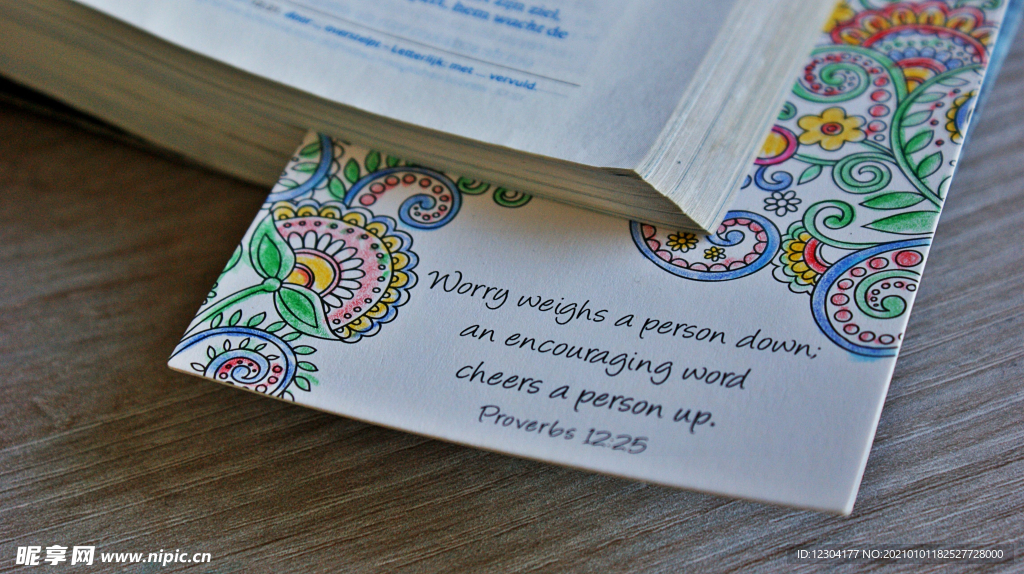 zijn ziel,
hem wacht de
door ... overstelpt - Letterlijk: met ... vervuld.
Worry weighs a person down;
an encouraging word
cheers a person up.
Proverbs 12:25
昵享网 www.nipic.cn
ID:12304177 NO:20210101182527728000